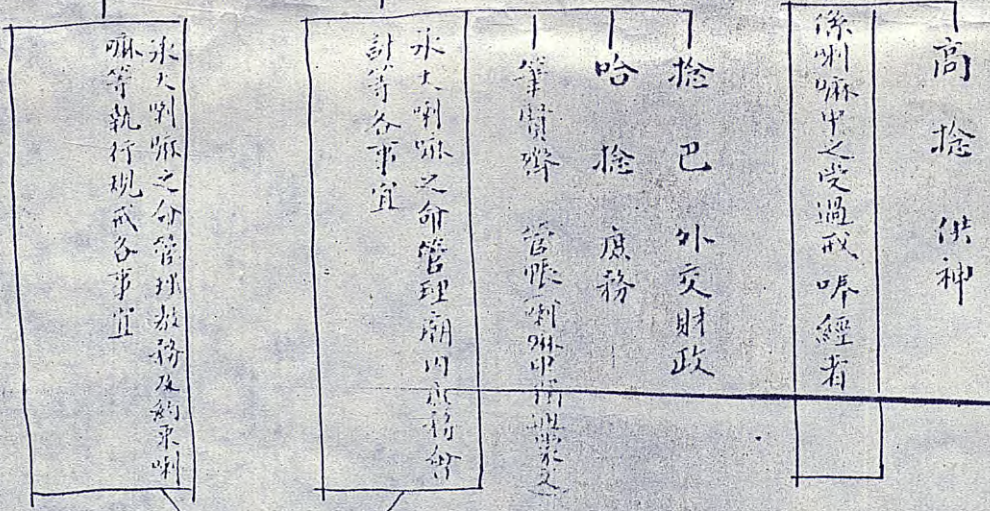 高捻 供神
係喇嘛中之受過戒唪經者
捻巴 外交財政
哈捻 庶務
筆賢齊 管賬喇嘛中精通蒙文
承大喇嘛之命管理廟内庶務會
計等各事宜
承大喇嘛之命管理教務及約束喇
嘛等執行規戒各事宜